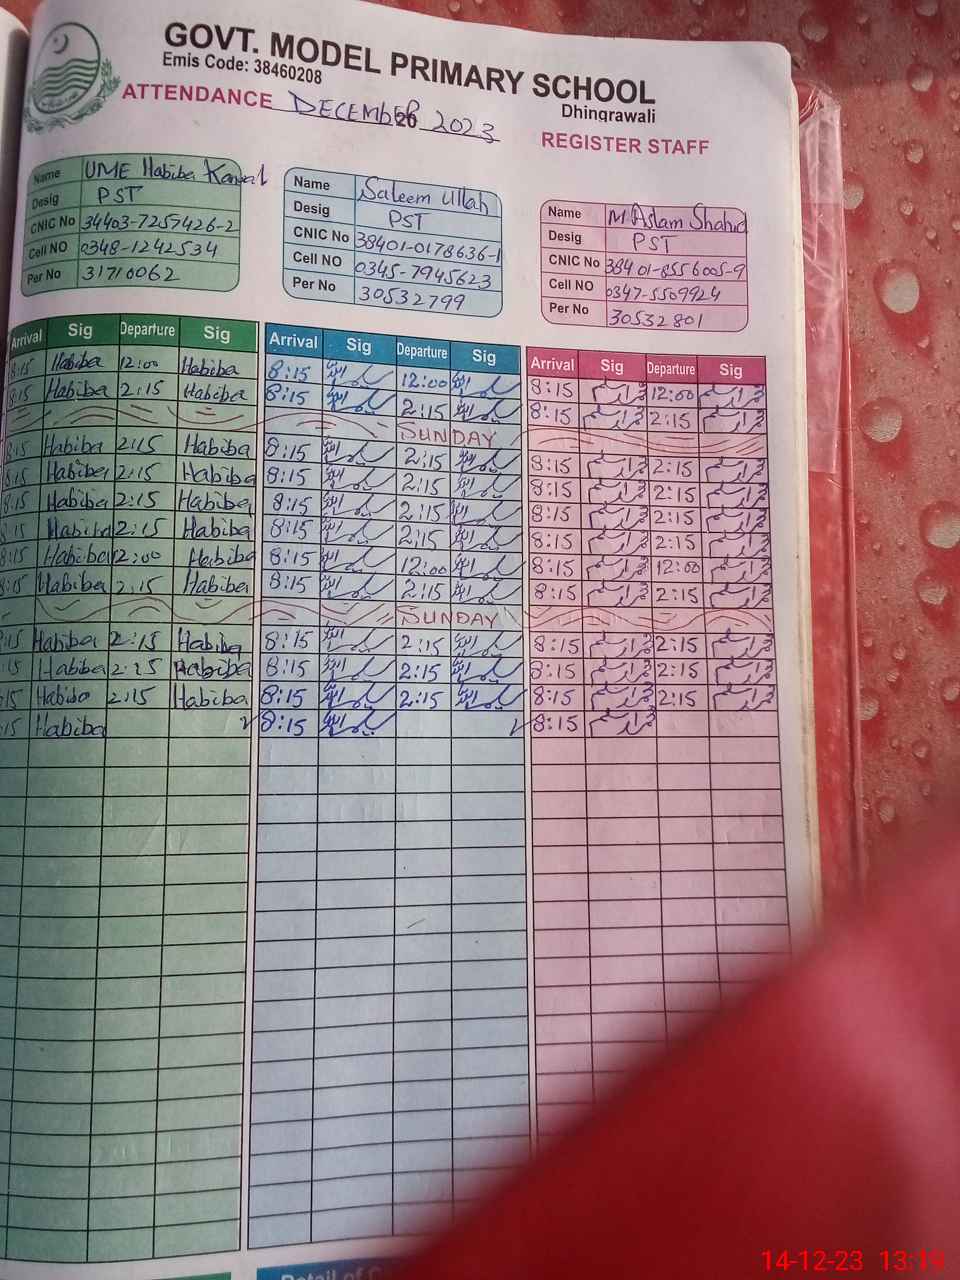 GOVT. MODEL PRIMARY SCHOOL
Emis Code: 38460208
Dhingrawali
ATTENDANCE DECEMBER 20 2023
REGISTER STAFF
Name UME Habiba Kanwal
Desig PST
CNIC No 34403-7257426-2
Cell NO 0348-1242534
Per No 31710062
Name Saleem Ullah
Desig PST
CNIC No 38401-0178636-1
Cell NO 0345-7945623
Per No 30532799
Name M Aslam Shahid
Desig PST
CNIC No 38401-8556005-9
Cell NO 0347-5509924
Per No 30532801
Arrival Sig Departure Sig Arrival Sig Departure Sig Arrival Sig Departure Sig
8:15 Habiba 12:00 Habiba 8:15 12:00 8:15 12:00
8:15 Habiba 2:15 Habiba 8:15 2:15 8:15 2:15
SUNDAY
8:15 Habiba 2:15 Habiba 8:15 2:15 8:15 2:15
8:15 Habiba 2:15 Habiba 8:15 2:15 8:15 2:15
8:15 Habiba 2:15 Habiba 8:15 2:15 8:15 2:15
8:15 Habiba 2:15 Habiba 8:15 2:15 8:15 2:15
8:15 Habiba 12:00 Habiba 8:15 12:00 8:15 12:00
8:15 Habiba 2:15 Habiba 8:15 2:15 8:15 2:15
SUNDAY
:15 Habiba 2:15 Habiba 8:15 2:15 8:15 2:15
:15 Habiba 2:15 Habiba 8:15 2:15 8:15 2:15
:15 Habiba 2:15 Habiba 8:15 2:15 8:15 2:15
:15 Habiba 8:15 8:15
Detail of
14-12-23 13:19